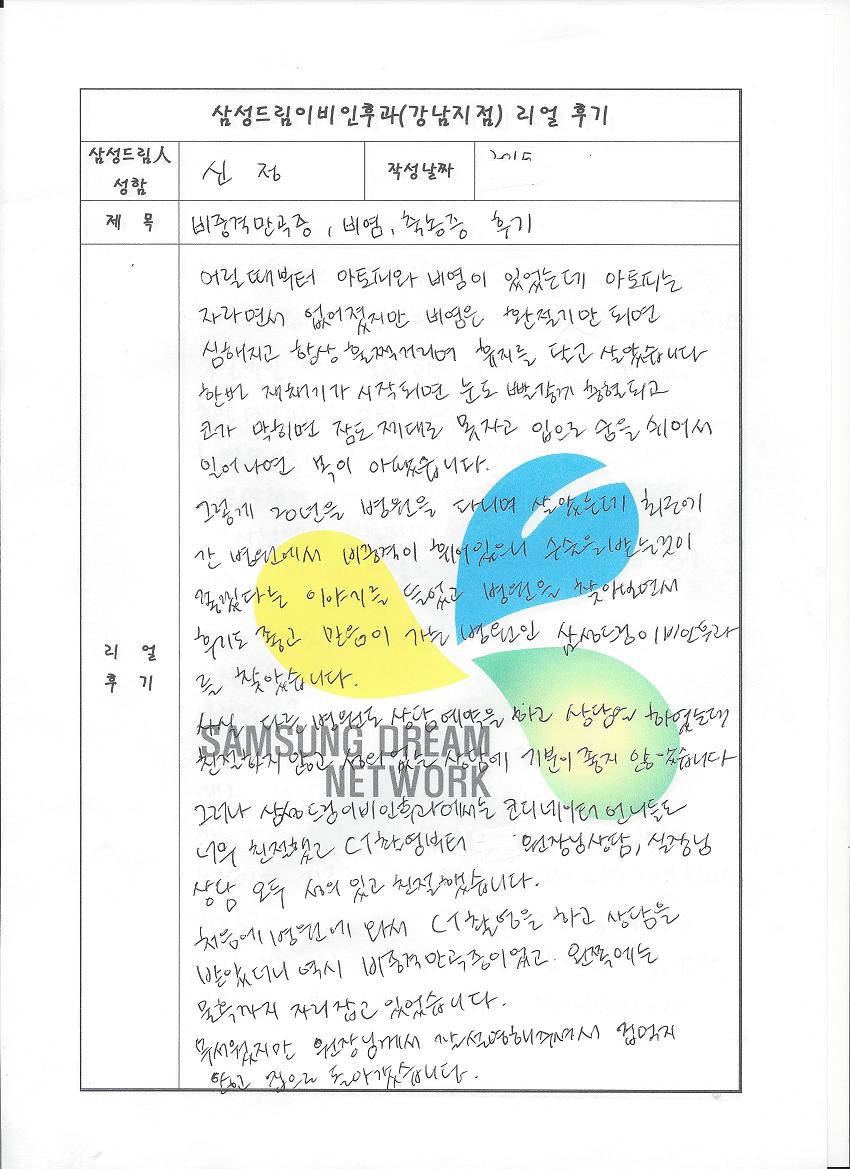 삼성드림이비인후과(강남지점) 리얼 후기
삼성드림人 성함
신 정
작성날짜
2015
제 목
비중격만곡증, 비염, 축농증 후기
리 얼 후 기
어릴때부터 아토피와 비염이 있었는데 아토피는
자라면서 없어졌지만 비염은 환절기만 되면
심해지고 항상 훌쩍거리며 휴지를 달고 살았습니다
한번 재채기가 시작되면 눈도 빨갛게 충혈되고
코가 막히면 잠도 제대로 못자고 입으로 숨을 쉬어서
일어나면 목이 아팠습니다.
그렇게 20년을 병원을 다니며 살았는데 최근에
간 병원에서 비중격이 휘어있으니 수술을 받는것이
좋겠다는 이야기를 들었고 병원을 찾아보면서
후기도 좋고 믿음이 가는 병원인 삼성드림이비인후과
를 찾았습니다.
사실 다른 병원도 상담예약을 하고 상담을 하였는데
친절하지 않고 성의없는 상담에 기분이 좋지 않았습니다
SAMSUNG DREAM
NETWORK
그러나 삼성드림이비인후과에서는 코디네이터 언니들도
너무 친절했고 CT촬영부터 원장님상담, 실장님
상담 모두 성의 있고 친절했습니다.
처음에 병원에 와서 CT촬영을 하고 상담을
받았더니 역시 비중격만곡증이었고 왼쪽에는
물혹까지 자리잡고 있었습니다.
무서웠지만 원장님께서 잘 설명해주셔서 겁먹지
않고 집으로 돌아갔습니다.